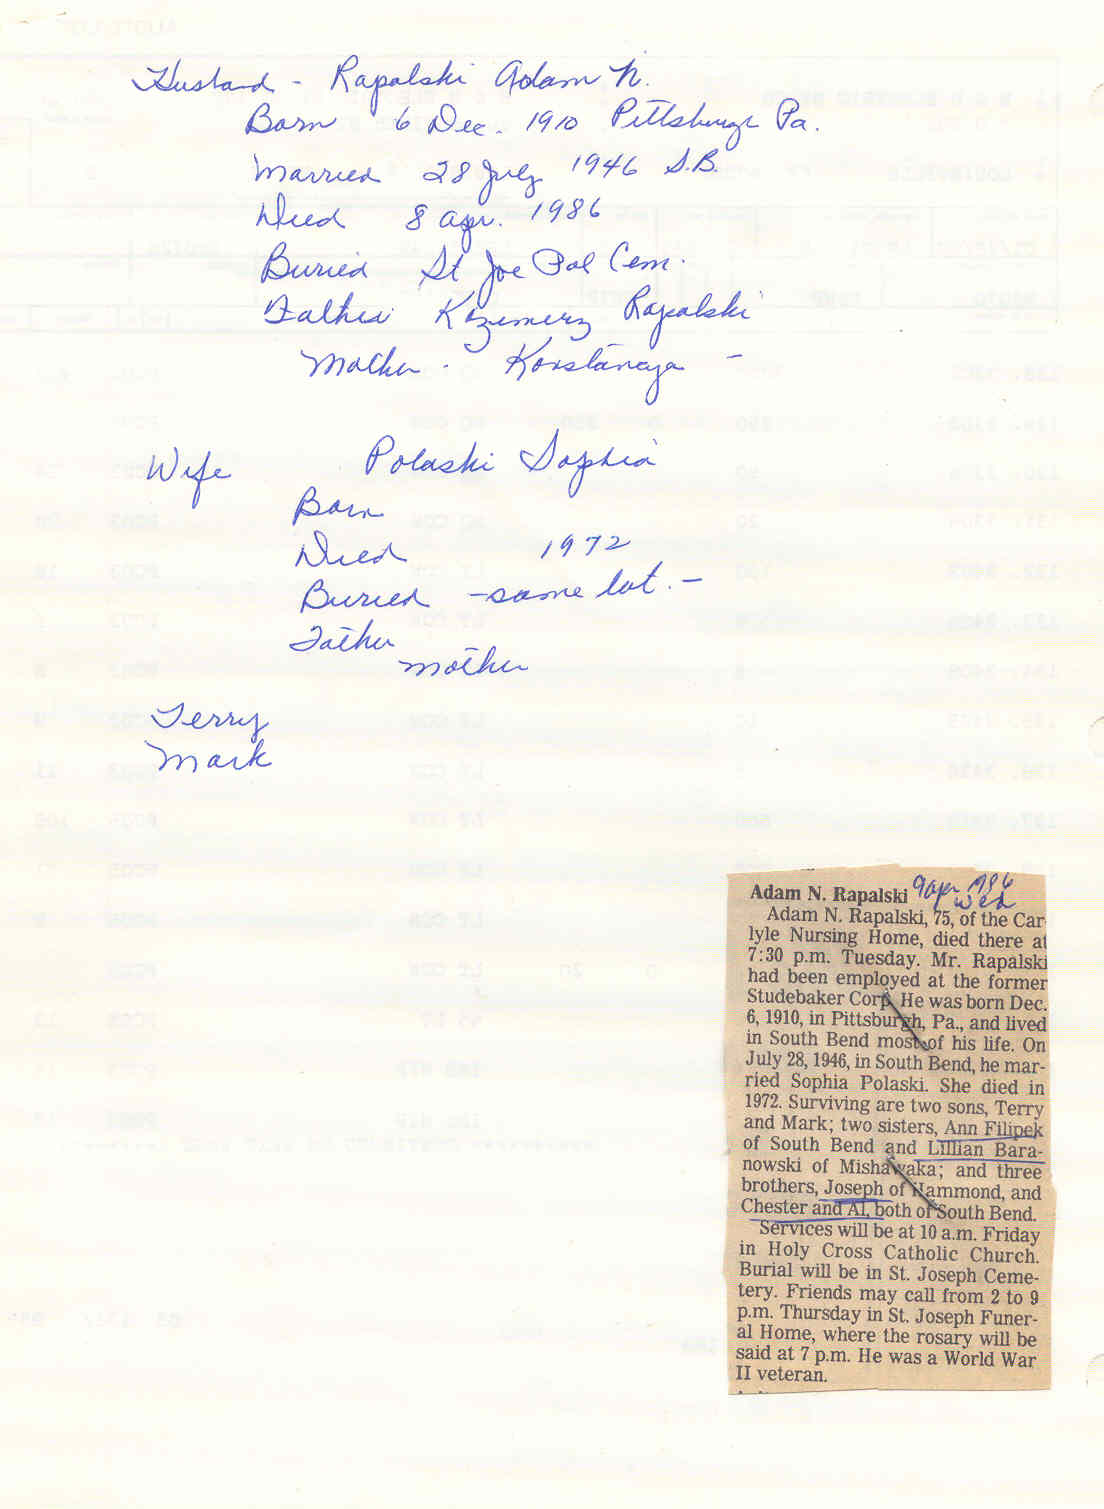 Husband - Rapalski Adam N.
Born 6 Dec. 1910 Pittsburgh Pa.
Married 28 July 1946 S.B.
Died 8 apr. 1986
Buried St Joe Pol Cem.
Father Kazimerz Rapalski
Mother - Konstancya -
Wife Polaski Sophia
Born
Died 1972
Buried - same lot. -
Father
Mother
Terry
Mark
Adam N. Rapalski 9 apr 1986
Wed
Adam N. Rapalski, 75, of the Car-
lyle Nursing Home, died there at
7:30 p.m. Tuesday. Mr. Rapalski
had been employed at the former
Studebaker Corp. He was born Dec.
6, 1910, in Pittsburgh, Pa., and lived
in South Bend most of his life. On
July 28, 1946, in South Bend, he mar-
ried Sophia Polaski. She died in
1972. Surviving are two sons, Terry
and Mark; two sisters, Ann Filipek
of South Bend and Lillian Bara-
nowski of Mishawaka; and three
brothers, Joseph of Hammond, and
Chester and Al, both of South Bend.
Services will be at 10 a.m. Friday
in Holy Cross Catholic Church.
Burial will be in St. Joseph Ceme-
tery. Friends may call from 2 to 9
p.m. Thursday in St. Joseph Funer-
al Home, where the rosary will be
said at 7 p.m. He was a World War
II veteran.